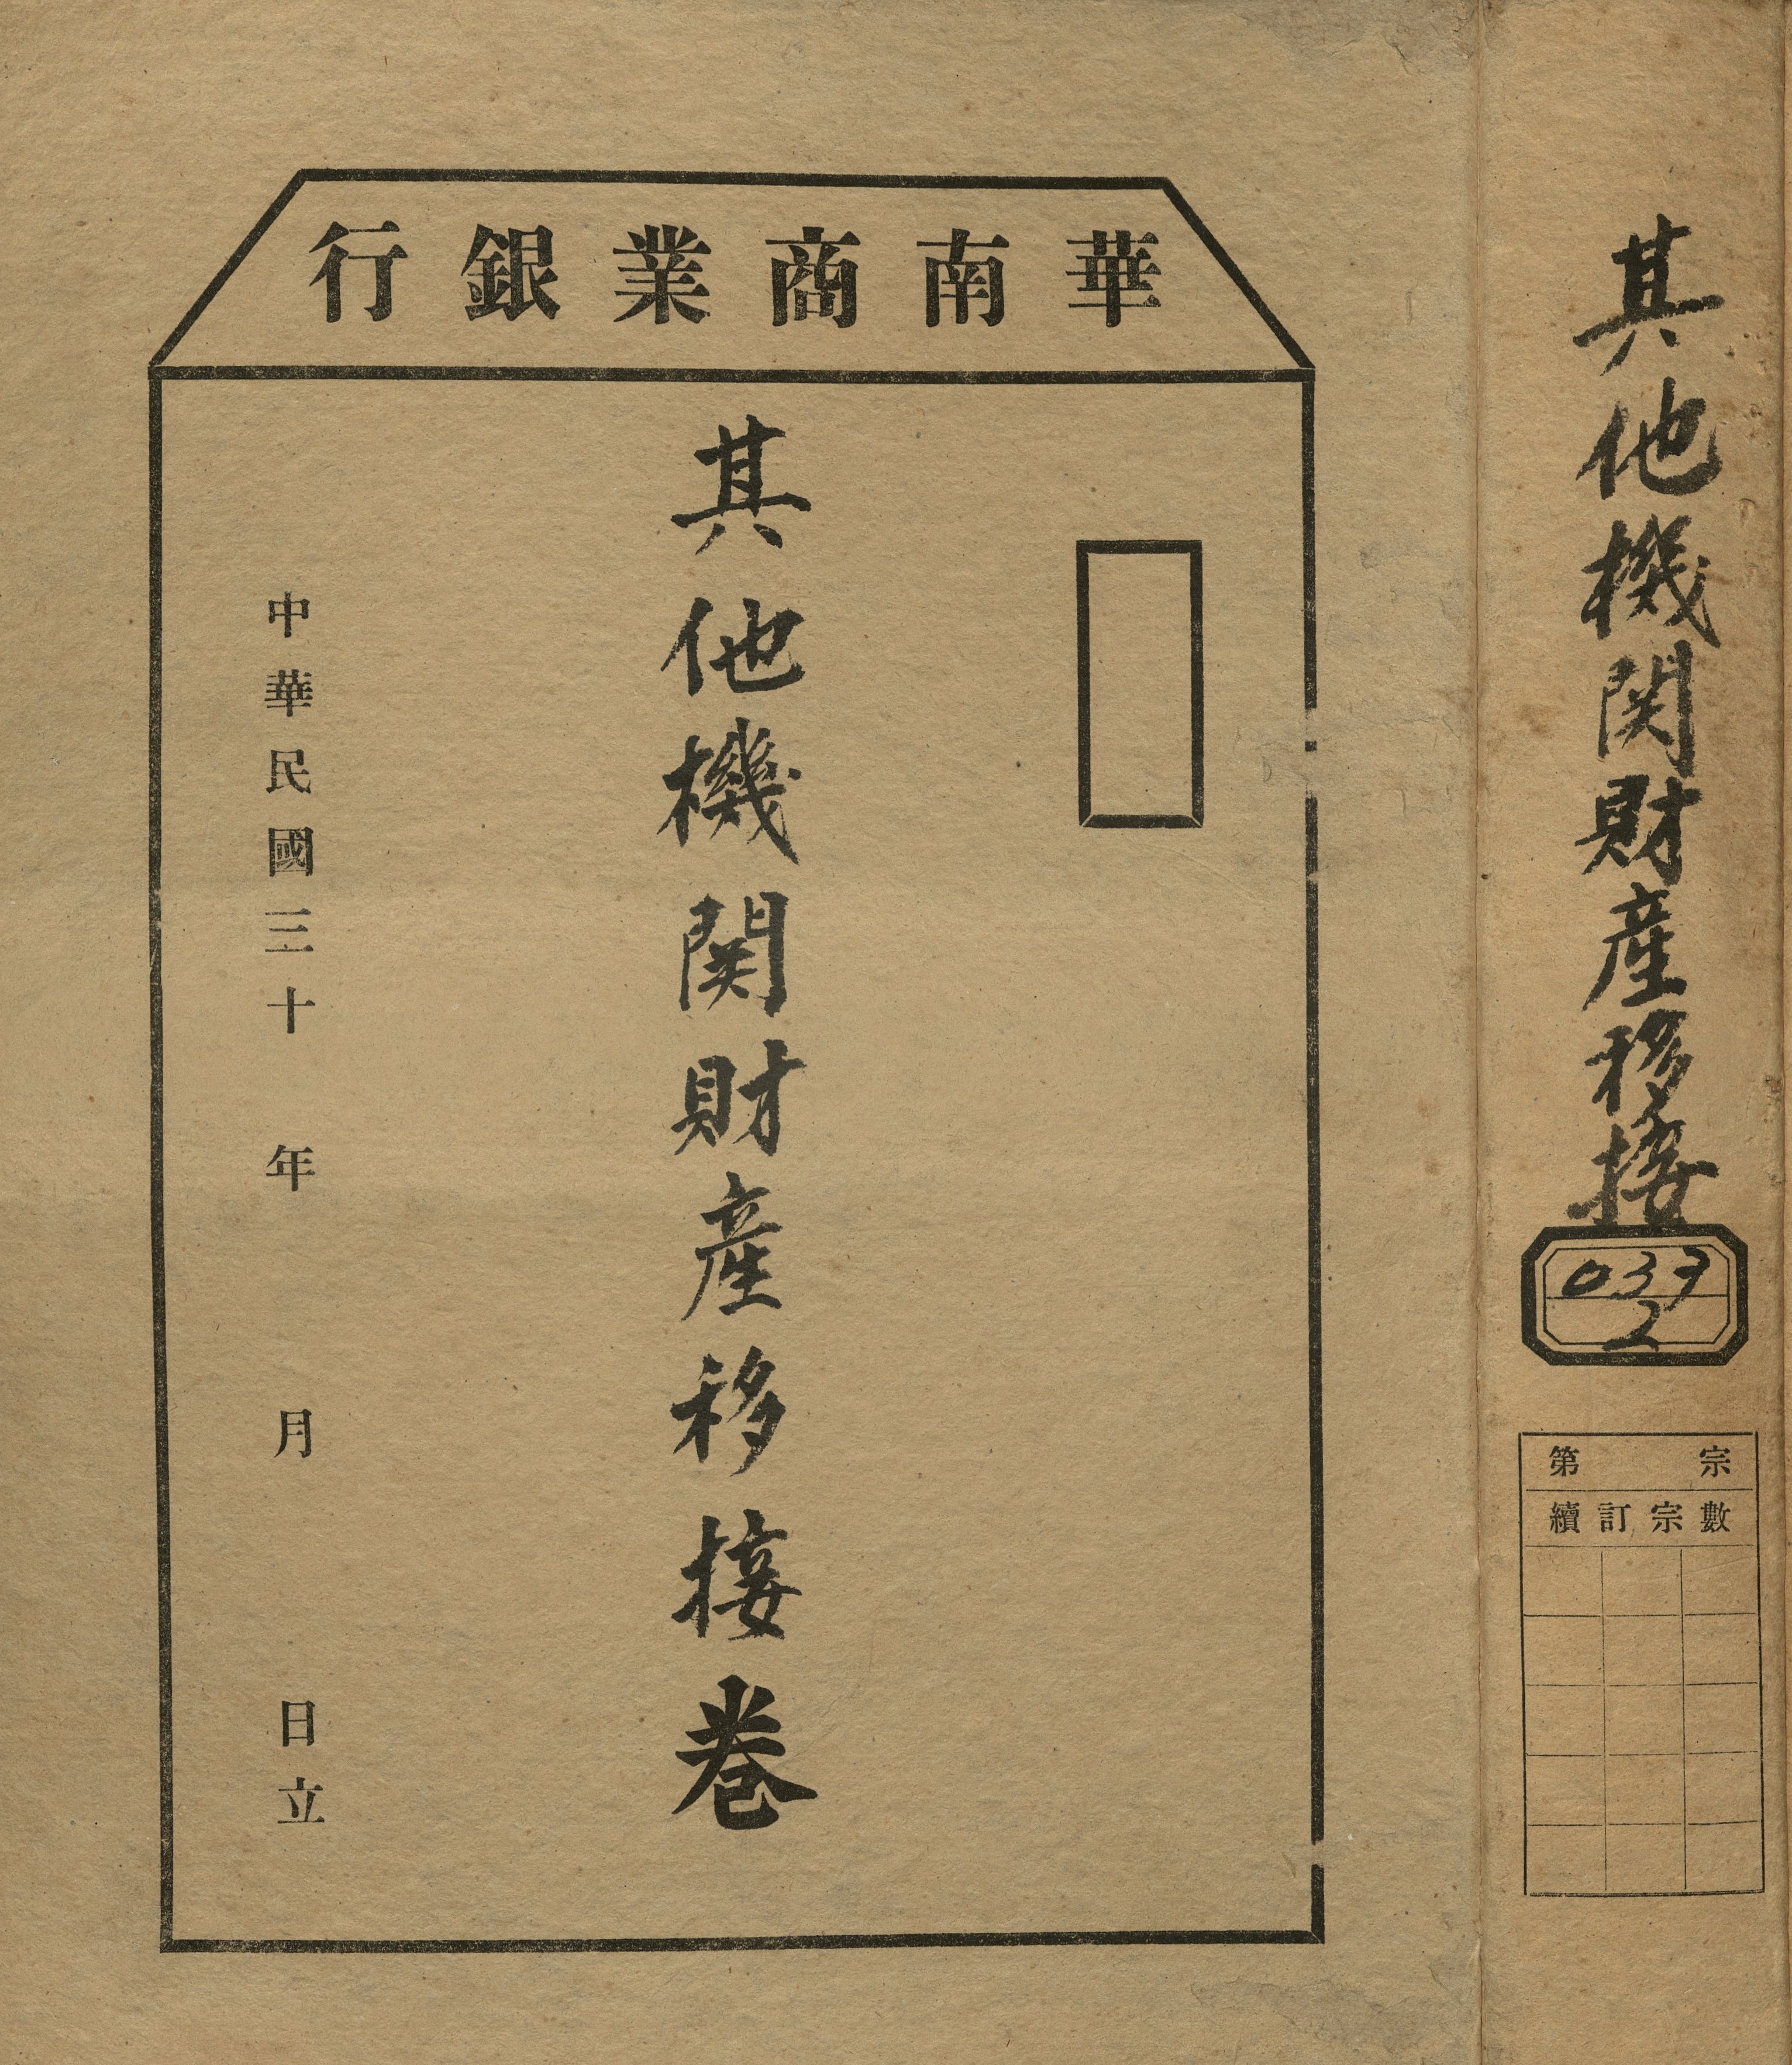 華南商業銀行
其他機関財産移接卷
中華民國三十 年 月 日立
其他機関財産移接
037
2
第 宗
續訂宗數